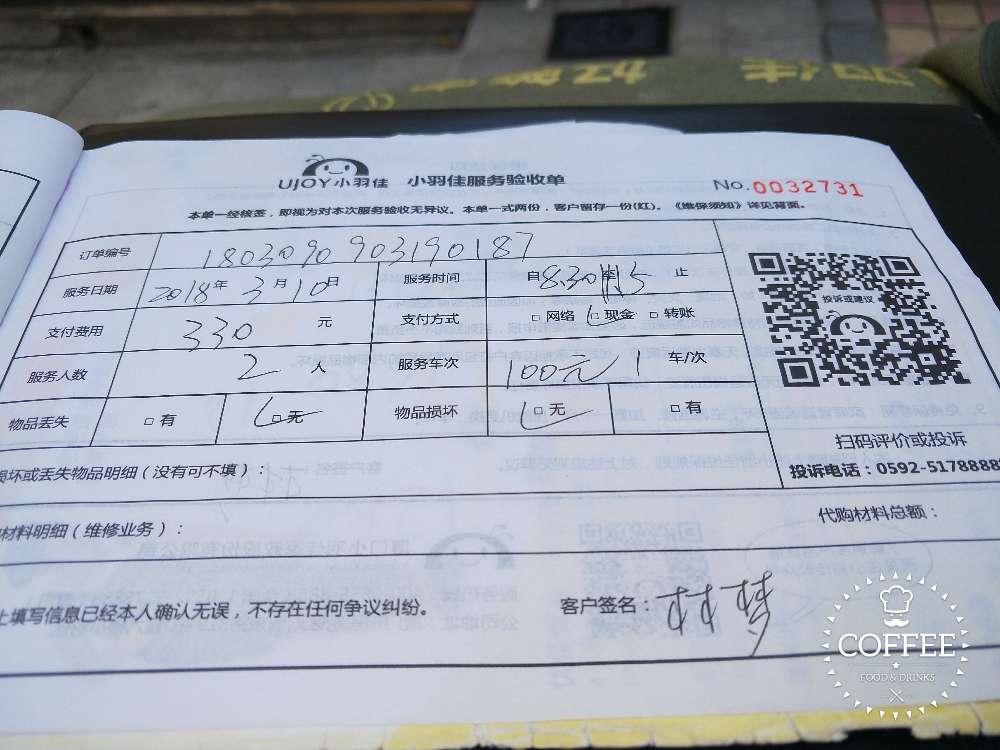 UJOY小羽佳 小羽佳服务验收单 No.0032731
本单一经核签，即视为对本次服务验收无异议。本单一式两份，客户留存一份(红)。《维保须知》详见背面。
订单编号 1803090903190187
服务日期 2018年3月10日 服务时间 自8:30 止
支付费用 330 元 支付方式 □网络 □现金 □转账
投诉或建议
服务人数 2 人 服务车次 100元/1 车/次
物品丢失 □有 □无 物品损坏 □无 □有
扫码评价或投诉
损坏或丢失物品明细（没有可不填）：
投诉电话：0592-5178888
材料明细（维修业务）： 代购材料总额：
上填写信息已经本人确认无误，不存在任何争议纠纷。 客户签名：林梦
COFFEE
FOOD & DRINKS